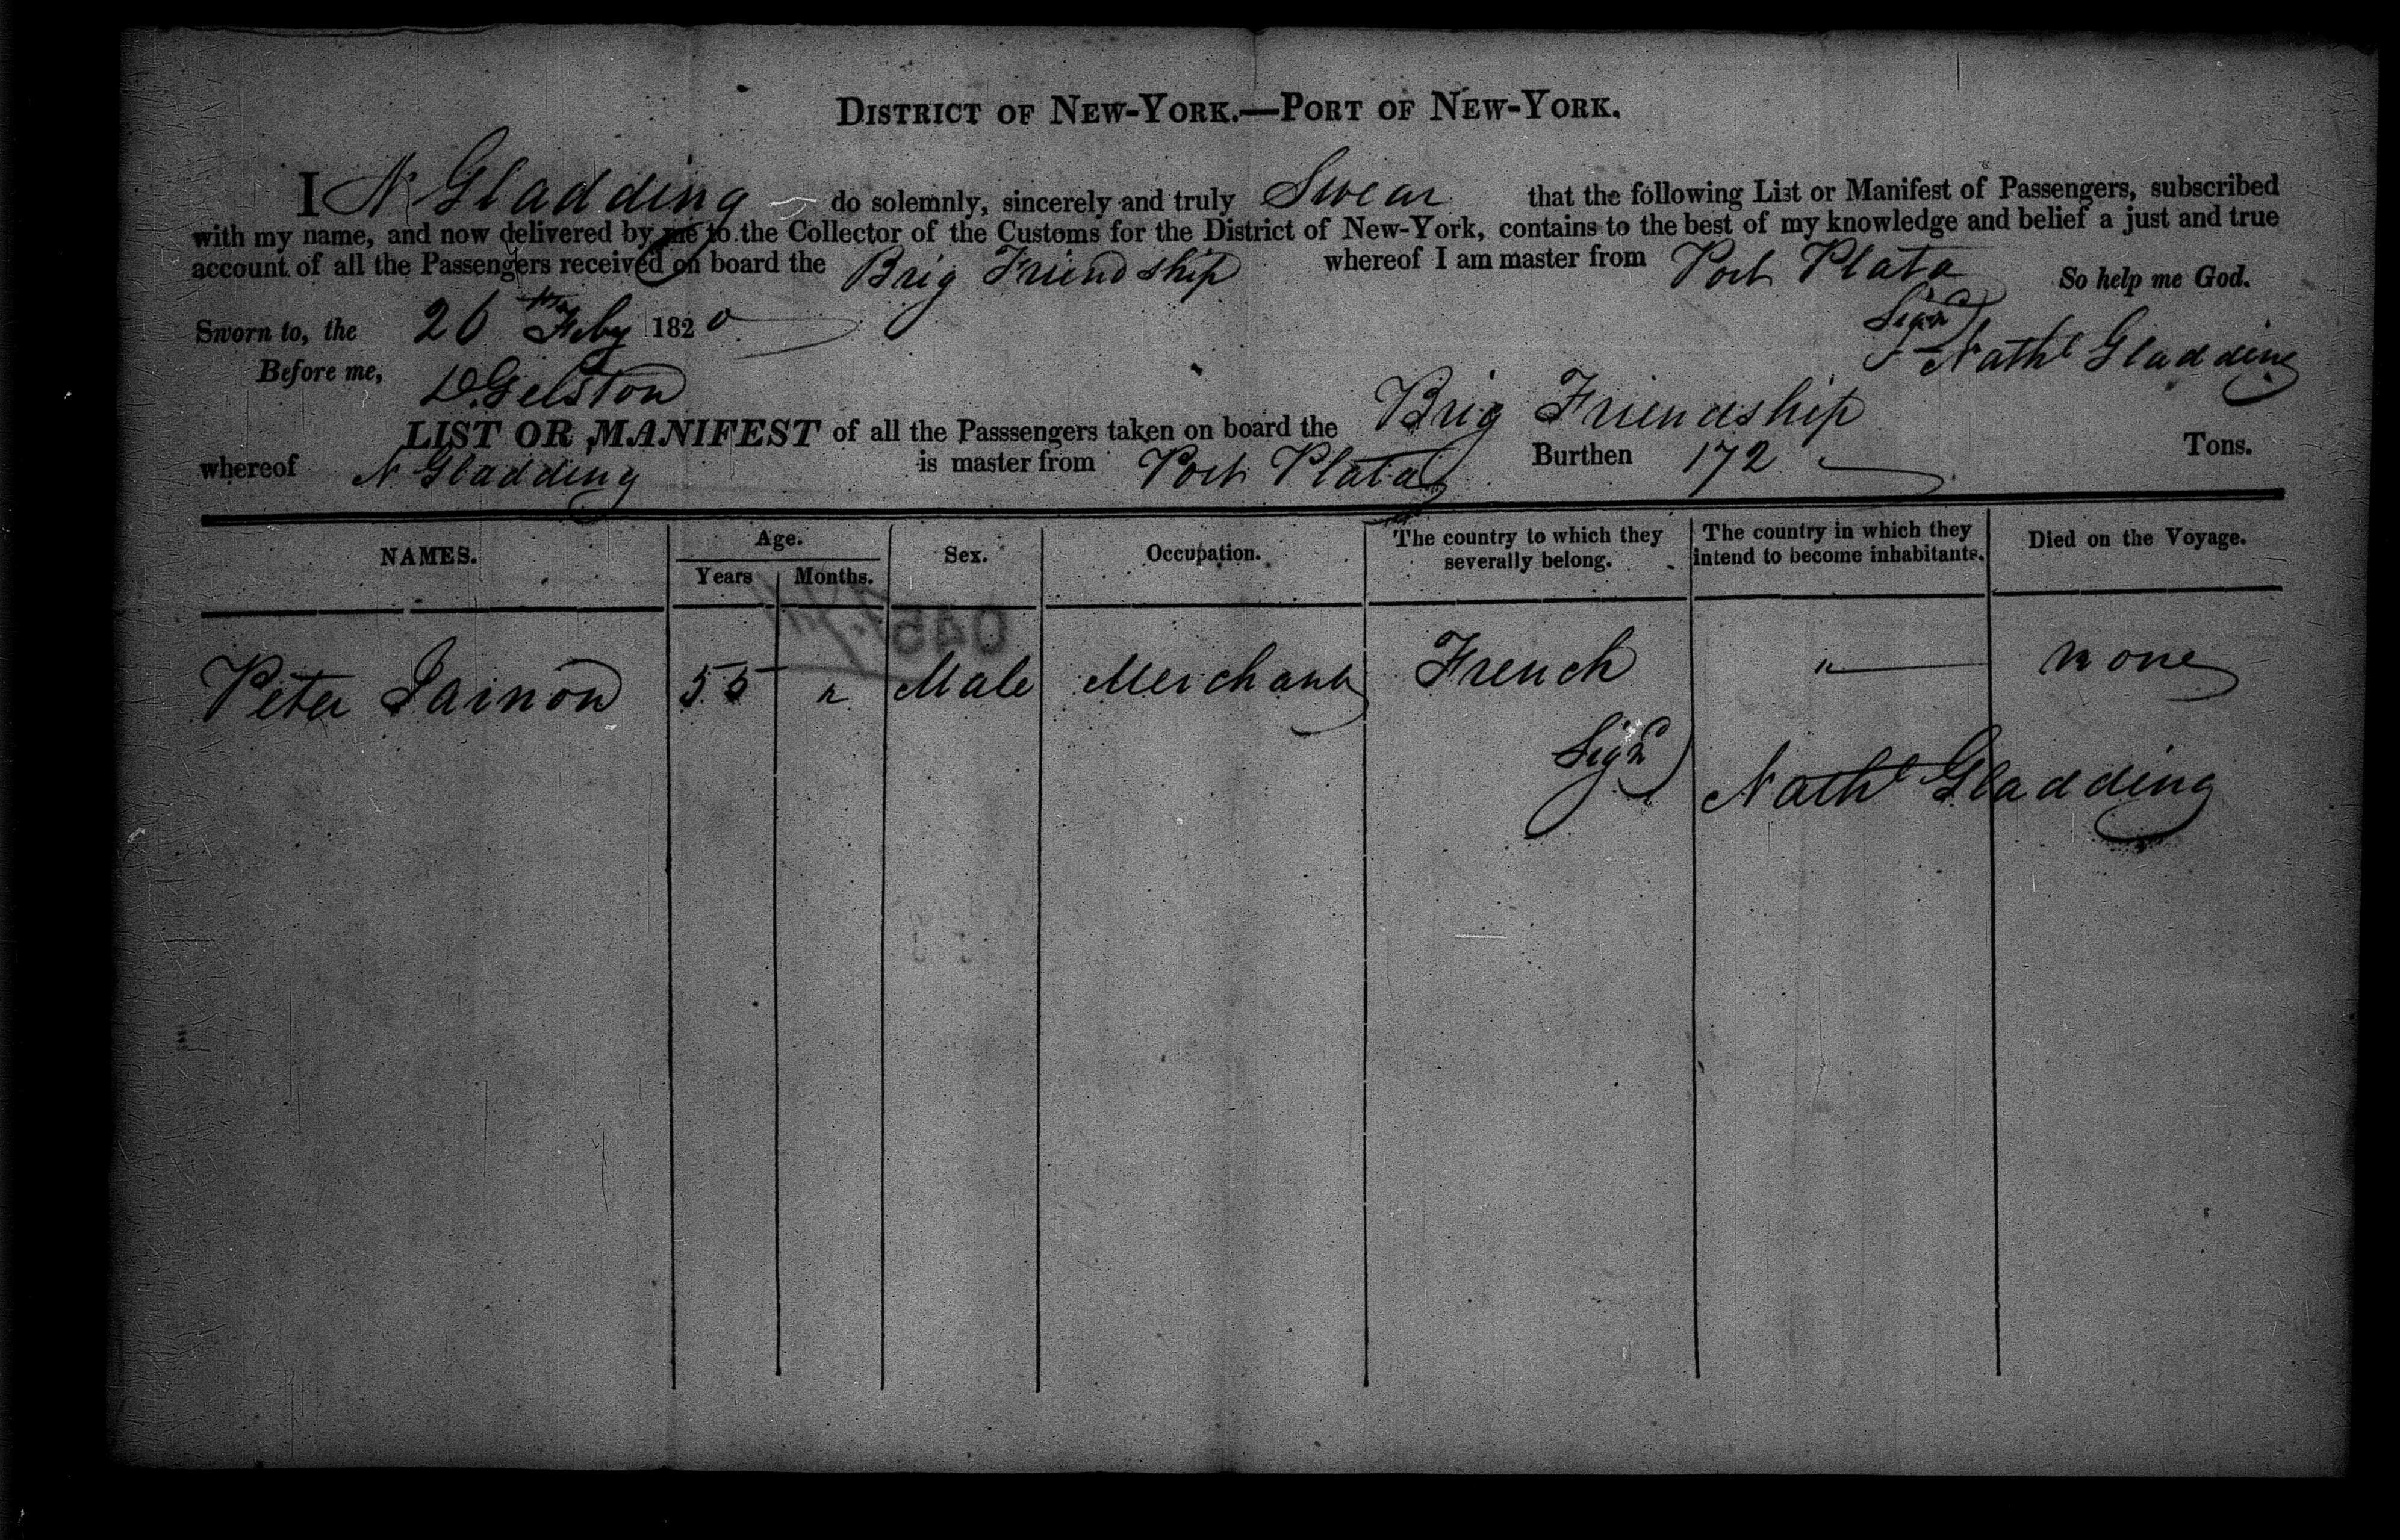 DISTRICT OF NEW-YORK.—PORT OF NEW-YORK.
I N Gladding do solemnly, sincerely and truly Swear that the following List or Manifest of Passengers, subscribed
with my name, and now delivered by me to the Collector of the Customs for the District of New-York, contains to the best of my knowledge and belief a just and true
account of all the Passengers received on board the Brig Friendship whereof I am master from Port Plata So help me God.
Sworn to, the 26th Feby 1820 Signd
Nathl Gladding
Before me, D. Gelston
LIST OR MANIFEST of all the Passsengers taken on board the Brig Friendship
whereof N Gladding is master from Port Plata Burthen 172 Tons.
NAMES. Age. Years Months. Sex. Occupation. The country to which they severally belong. The country in which they intend to become inhabitants. Died on the Voyage.
Peter 55 " Male Merchant French " none
Signd Nathl Gladding